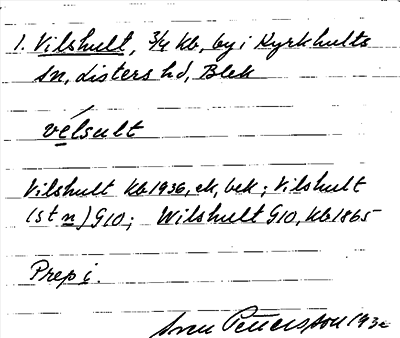 1. Vilshult, 3/4 kb, by i Kyrkhults
sn, Listers hd, Blek
vélsult
Vilshult kb 1936, ek, bek; Vilshult
(st n) G10; Wilshult G10, kb 1865
Prep i.
Sven Pettersson 193